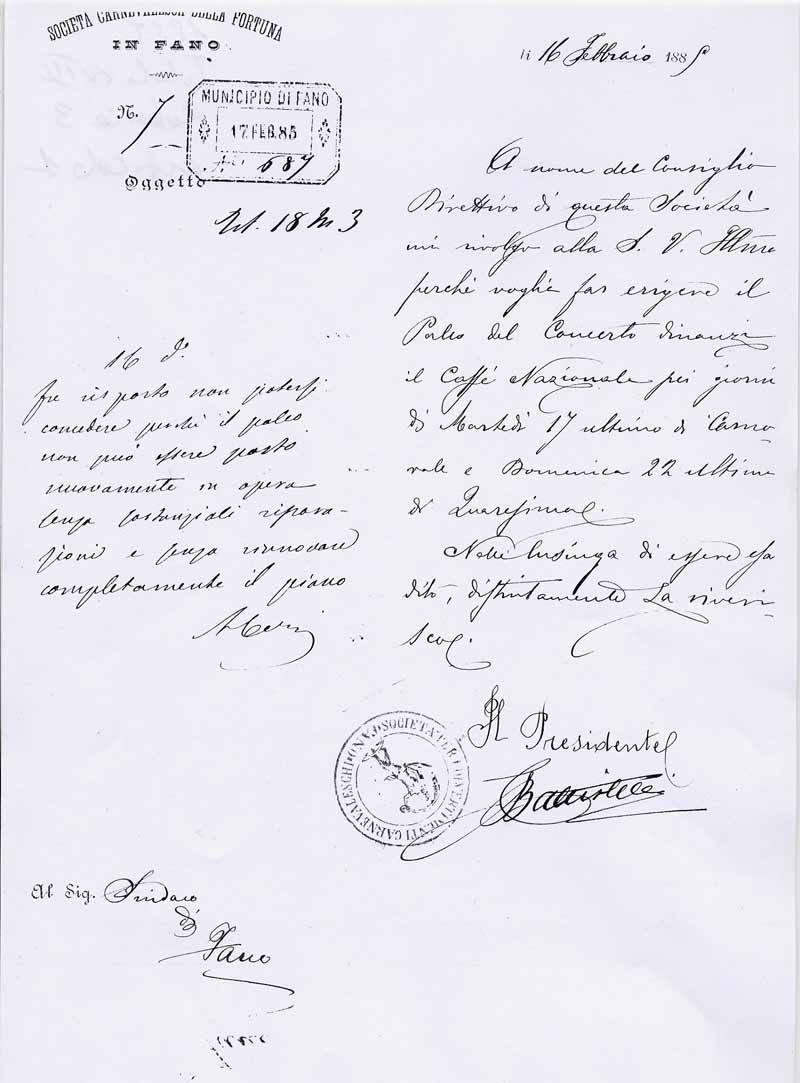 SOCIETÀ CARNEVALESCA DELLA FORTUNA
IN FANO
li 16 Febbraio 1885
N. 7
MUNICIPIO DI FANO
17 FEB. 85
N° 687
Oggetto
Tit. 18 N 3
A nome del Consiglio
Direttivo di questa Società
mi rivolgo alla S. V. Illma
perché voglia far erigere il
Palco del Concerto dinanzi
il Caffè Nazionale pei giorni
di Martedì 17 ultimo di Carno-
vale e Domenica 22 ultima
di Quaresima.
Nella lusinga di essere esa
dito, distintamente La riveri-
sco.
Il Presidente
Battistelli
16 d.°
fu risposto non potersi
concedere perchè il palco
non può essere posto
nuovamente in opera
senza sostanziali ripara-
zioni e senza rinnovare
completamente il piano
SOCIETÀ PER I DIVERTIMENTI CARNEVALESCHI
Al Sig. Sindaco
di
Fano